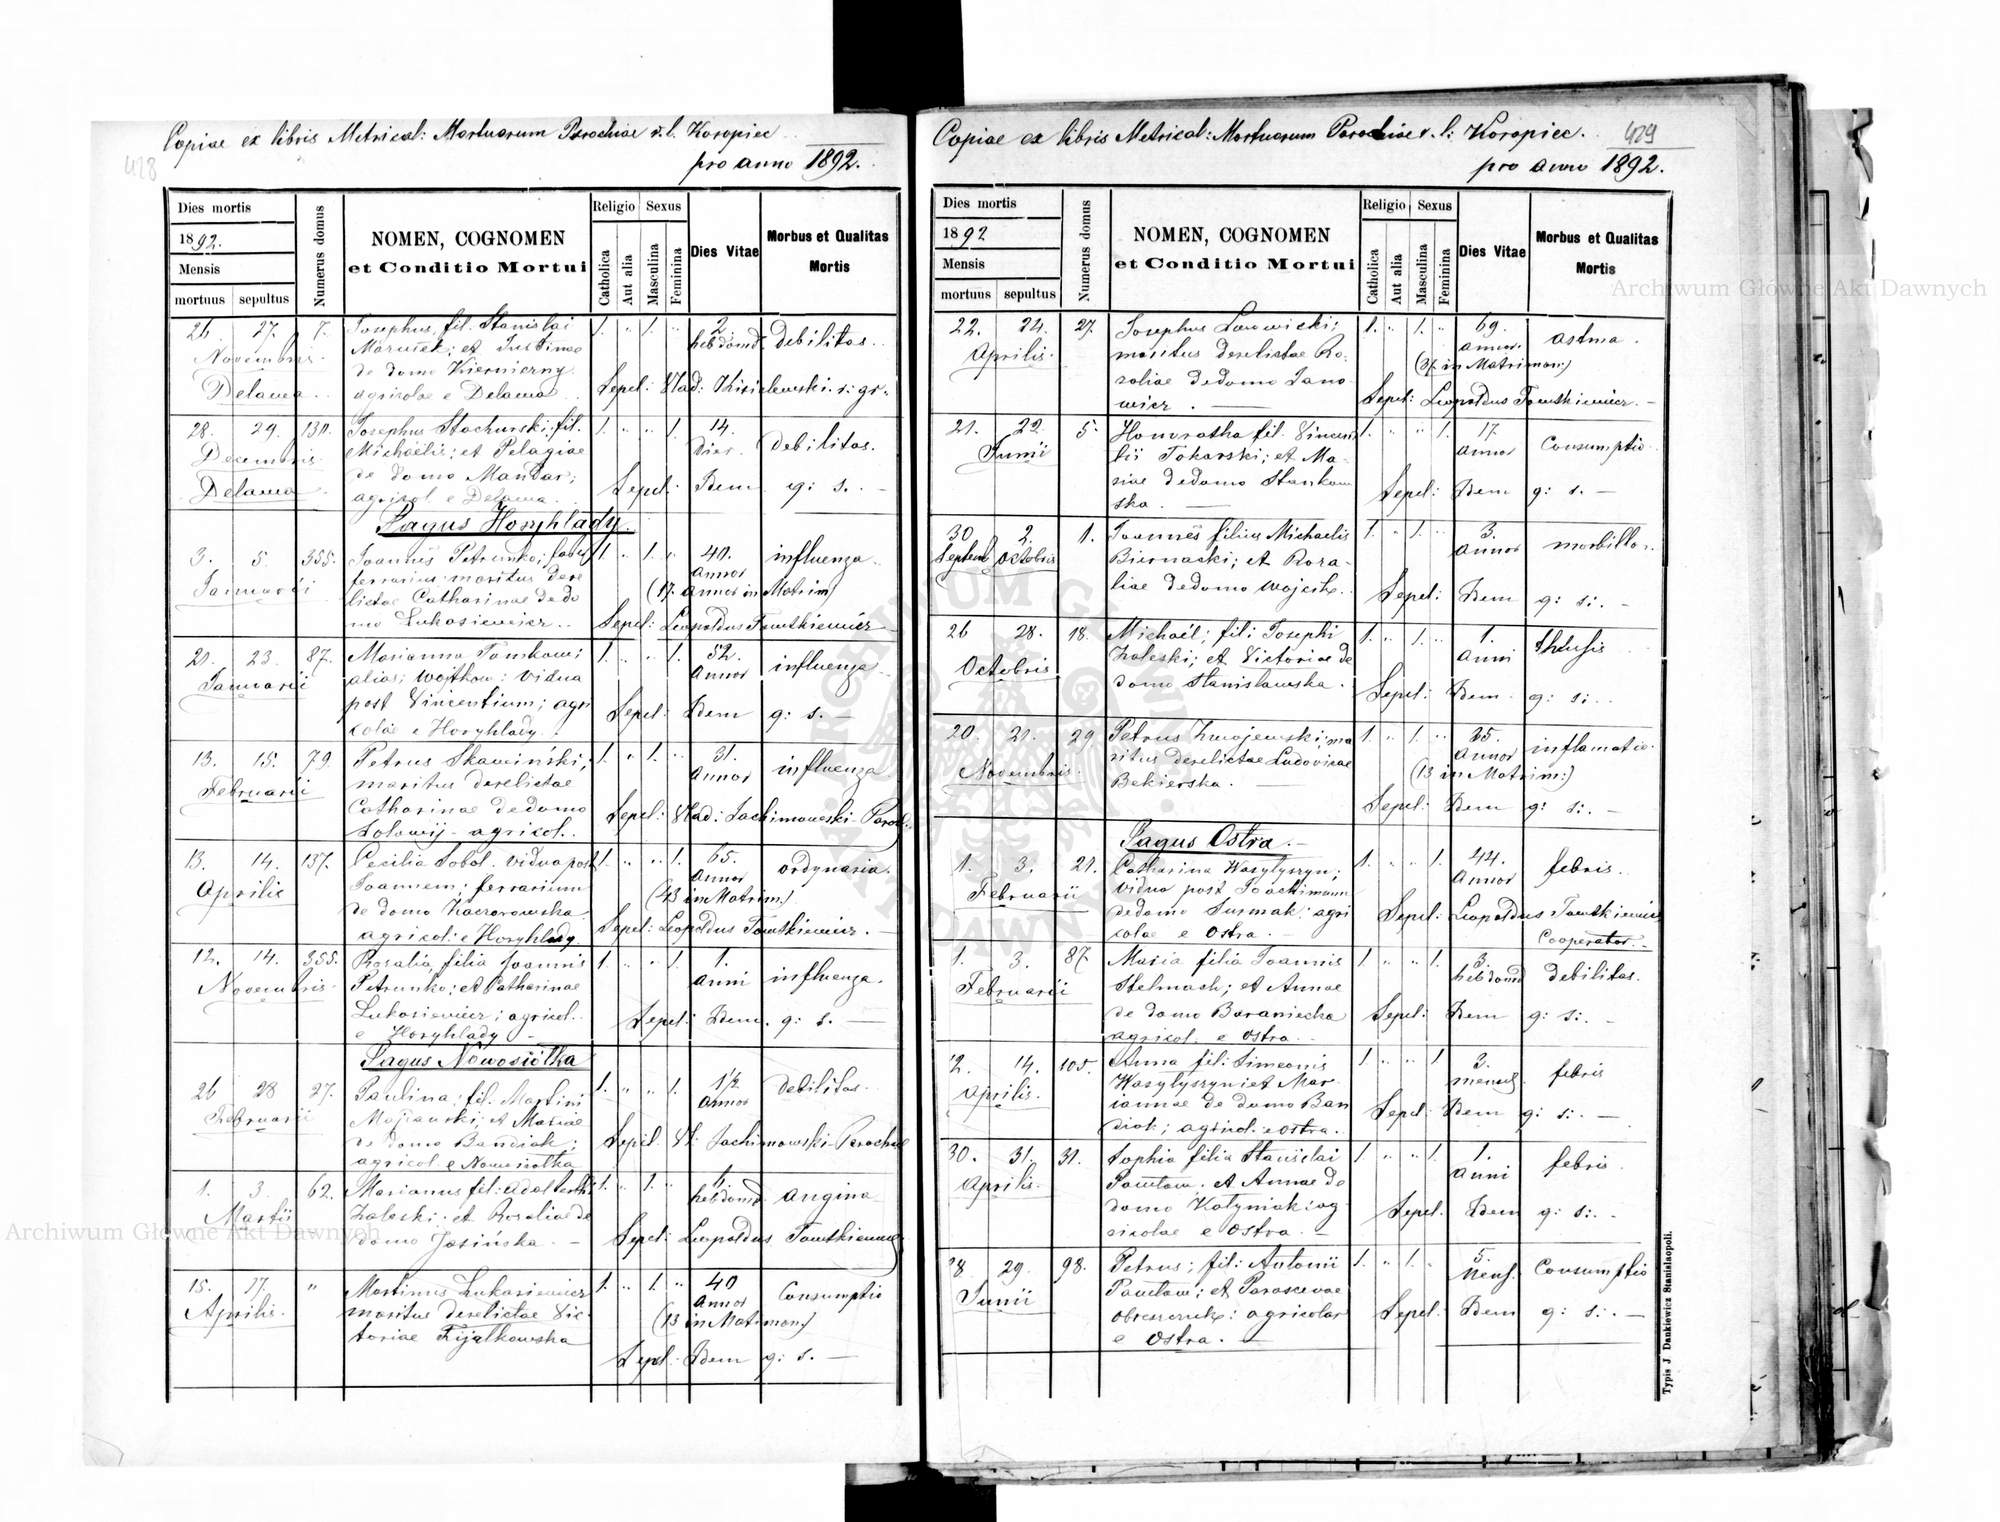 Copiae ex libris Metrical: Mortuorum Parochiae r. l. Koropiec
pro anno 1892.
418
Dies mortis
1892.
Mensis
mortuus sepultus
Numerus domus
NOMEN, COGNOMEN
et Conditio Mortui
Religio Sexus
Catholica
Aut alia
Masculina
Feminina
Dies Vitae
Morbus et Qualitas
Mortis
26 27. 7. Josephus, fil. Stanislai 1. " 1. " 2 debilitas.
Novembris Maruszek; et Justinae hebdomd.
de domo Kiernierny
Delawa agricolae e Delawa Sepel: Vlad: Kisielewski r: gr.
28. 29. 130. Josephus Stachurski; fil. 1. " " 1. 14. debilitas.
Decembris Michaëlis; et Pelagiae dier.
de domo Mandar;
Delawa agricol. e Delawa. Sepel: Idem q: s. —
Pagus Horyhlady.
3. 5. 355. Joannes Petrunko; faber 1. " 1. " 40. influenza.
Januarii ferrarius maritus dere annor
lictae Catharinae de do (17. annor in Matrim)
mo Lukasiewicz.. Sepel: Leopoldus Pawtkiewicz
21. 23. 87. Marianna Tomkow; 1. " " 1. 52. influenza
Januarii alias; Wojtkow: vidua annor
post Vincentium; agri Sepel: Idem q: s. —
colae e Horyhlady.
13. 15. 79. Petrus Skamiński; 1. " 1. " 31. influenza.
Februarii maritus derelictae annor
Catharinae de domo
Solowij - agricol. Sepel: Vlad: Jachimowski - Paroch:
13. 14. 137. Cecilia Sobol. vidua post 1. " " 1. 65. ordynaria.
Aprilis Joannem; ferrarium annor
de domo Kaczorowska (43 in Matrim)
agricol: e Horyhlady Sepel: Leopoldus Pawtkiewicz. —
12. 14. 355. Rosalia, filia Joannis 1. " " 1. 1. influenza.
Novembris Petrunko; et Catharinae anni
Lukasiewicz; agricol. Sepel: Idem. q: s. —
e Horyhlady —
Pagus Nowosiółka
26 28 27. Paulina; fil. Martini 1. " " 1. 1½ debilitas.
Februarii et Mariae annor
de domo Bandiak; Sepel. Vl: Jachimowski - Parochus
agricol. e Nowosiołka
1. 3. 62. Marianus fil: Adalberthi 1. " 1. " hebdomd. angina
Martii Zaleski: et Rosaliae de
domo Jasińska. — Sepel: Leopoldus Pawtkiewicz
15. 17. " Martinus Lukasiewicz 1. " 1. " 40 Consumptio
Aprilis. maritus derelictae Vic- annor
toriae Fijałkowska (13 in Matrimon:)
Sepel: Idem q: s. —
Copiae ex libris Metrical: Mortuorum Parochiae r. l: Koropiec. 419
pro anno 1892.
Dies mortis
1892
Mensis
mortuus sepultus
Numerus domus
NOMEN, COGNOMEN
et Conditio Mortui
Religio Sexus
Catholica
Aut alia
Masculina
Feminina
Dies Vitae
Morbus et Qualitas
Mortis
22. 24. 27. Josephus 1. " 1. " 69. astma.
Aprilis. maritus derelictae Ro- annor.
saliae de domo Jano- (37 in Matrimon:)
wicz. — Sepel: Leopoldus Pawtkiewicz. —
21. 22. 5. Honoratha fil. Vincen 1. " " 1. 17. Consumptio
Junii tii Tokarski; et Ma- annor
riae de domo Stankow Sepel: Idem q: s. —
ska. —
30 2. 1. Joannes filius Michaelis 1. " 1. " 3. morbillor.
Septemb Octobris Biernacki; et Rosa- annor
liae de domo Wojciech. Sepel: Idem q: s:. —
26 28. 18. Michaël; fil: Josephi 1. " 1. " 1. Phtysis
Octobris Zaleski; et Victoriae de anni
domo Stanisławska. Sepel: Idem. q: s:. .
20. 21. 29 Petrus Zwojewski; ma 1. " 1. " 35. inflamatio.
Novembris. ritus derelictae Ludovicae annor
Bekierska. — (13 in Matrim:)
Sepel: Idem q: s:. —
Pagus Ostra. —
1. 3. 21. Catharina Wasylyszyn; 1. " " 1. 44. febris.
Februarii vidua post Joachimum annor
de domo Surmak; agri Sepel: Leopoldus Pawtkiewicz
colae e Ostra. — Cooperator. —
1. 3. 87. Maria filia Joannis 1. " " 1. 3. debilitas.
Februarii Stelmach; et Annae hebdomd
de domo Baraniecka Sepel: Idem q: s:. —
agricol. e Ostra.
12. 14. 105. Anna fil: Simeonis 1. " " 1 3. febris
Aprilis. Wasylyszyn; et Mar- mens.
iannae de domo Ban Sepel: Idem q: s:. —
diak; agricol: e Ostra.
30. 31. 31. Sophia filia Stanislai 1. " " 1. 1. febris.
Aprilis. Pawlow. et Annae de anni
domo Katyniak: ag- Sepel: Idem q: s:. -
ricolae e Ostra. —
28. 29. 98. Petrus; fil: Antonii 1. " 1. " 5. Consumptio
Junii Pawlow; et Parascevae Mens.
agricolae Sepel: Idem q: s:. —
e Ostra. —
Typis J. Dankiewicz Stanislaopoli.
Archiwum Główne Akt Dawnych
Archiwum Główne Akt Dawnych